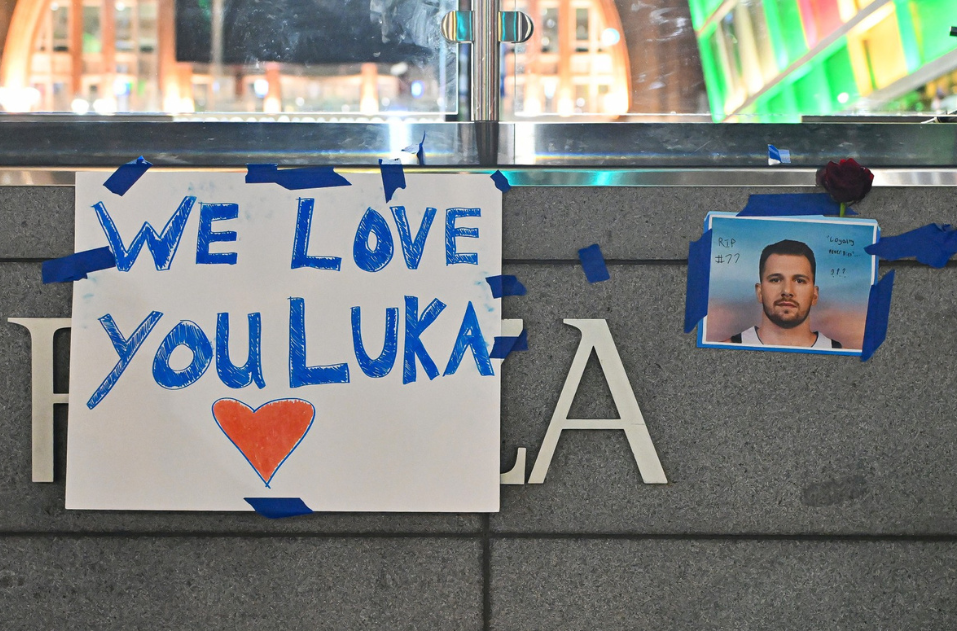 WE LOVE
YOU LUKA
RIP
#77
"Loyalty
A